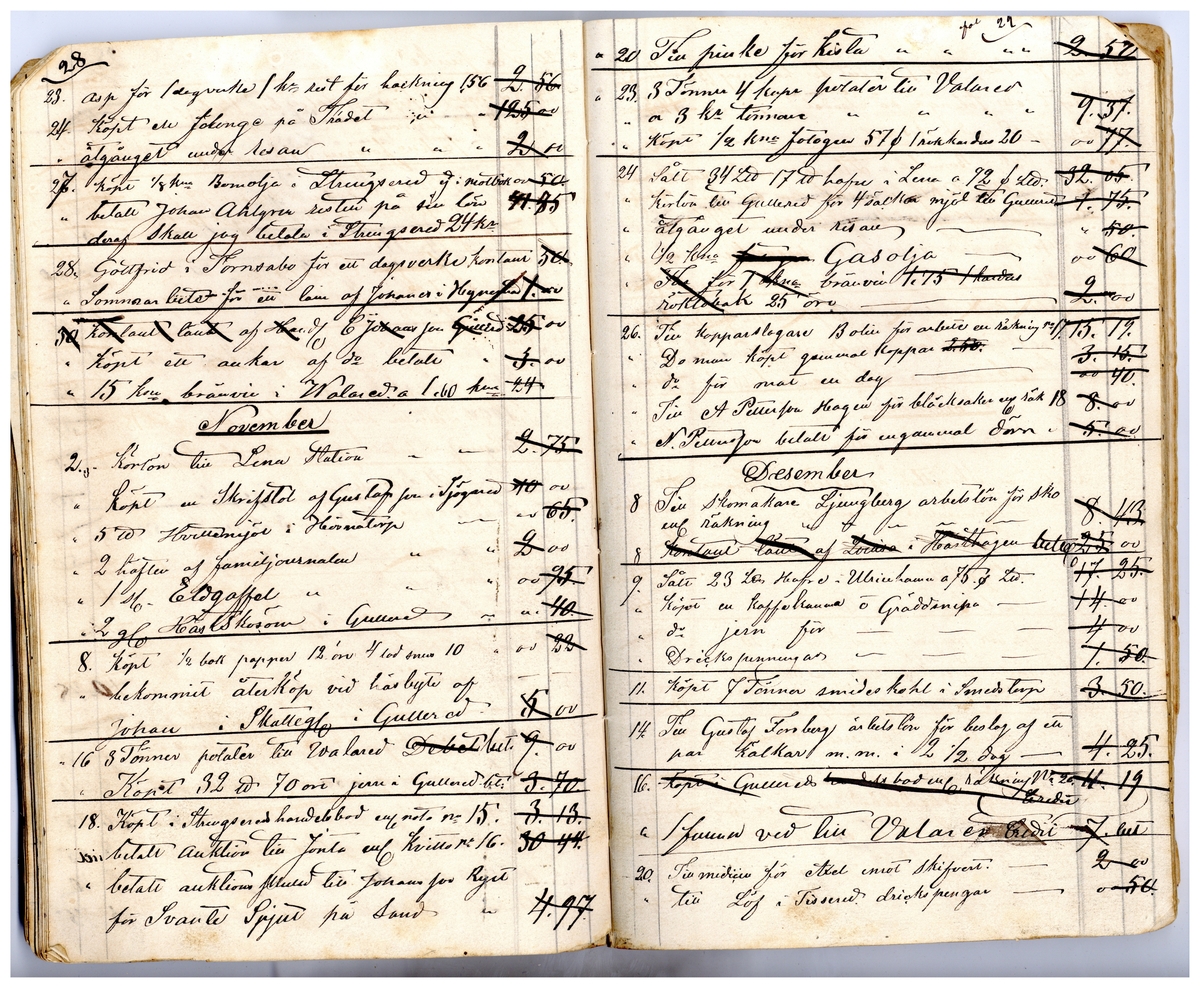 28
23. asp för 1 dagverke 1 kr rest för hackning 1,56 2. 56
24. Köpt en på 125 00
" åtgånget under resan " " " 2 00
27. Köpt 1/8 kna Bomolja i Strengsered 50
" betalt Johan Ahlgren resten på sin lön 41. 85
deraf skall jag betala i Strengsered 24 kr
28. Gottfrid i Tornsabo för ett dagsverke kontant 50
" Sommarbete för ett lam af Johanes i 1. 00
30 Kontant lånt af 6 25 00
" Köpt ett ankar af do betalt " 3. 00
" 15 kna bränvin i Walared a 1.60 kna 24
November
2. Körlön till Lena Station " " 2. 75
" Köpt en Skrifstol af Gustafson i Sjögared 10 00
" 5 ℔ Hvetemjöl i 00 65.
" 2 häften af familjournalen " " 2 00
" 1 st. Eldgaffel " " " 00 95
" 2 i Gullered " 40
8. Köpt 1/2 bok papper 12 öre 4 lod snus 10 " 00 22
" bekommit återköp vid häsbyte af
Johan i Skattegl i Gullered 5 00
" 16 3 Tönner potater till Walared Debet bet. 9. 00
" Köpt 32 ℔ 70 öre jern i Gullered bet. 3. 70
18. Köpt i Strengsereds handelsbod enl nota no 15. 3. 13.
betalt Auktion till Jonta enl Kvitto no 16. 30 44.
" betalt auktions till Johansson Ryet
för Svante Spjut på Sand " 4. 97
fol 29
" 20 Till pinke för Kista " " " " 2. 50
" 23. 3 Tönner 4 kapr potater till Valared
" a 3 kr tönnan " " " " 9. 37.
" Köpt 1/2 kna fotogen 57 ¢ 1 rökkardus 20 - 00 77.
24 Sålt 34 L℔ 17 ℔ hafre i Lena a 92 ¢ L℔. 32. 05
" Körlön till Gullered för 4 säckar mjöl till Gullered 1. 75.
" åtgånget under resan " 50
" 1/2 kna Gasolja 00 60
" för 1 kna bränvin 1.75 1 kardus
röktobak 25 öre 2. 00
26. Till Kopparslagare Bolin för arbete en räkning no 17 15. 19.
" Do man köpt gammal koppar 2.50. 3. 15.
" do för mat en dag 00 40.
" Till A Petterson Hagen för bläcksaker enl räk 18 8. 00
" N. Pettersson betalt för en gammal Dörr " 5. 00
Desember
8 Till Skomakare Ljungberg arbetslön för sko
enl räkning " " " " 8. 43
8 Kontant lånt af Lovisa i Hästhagen betalt 25 00
9. Sålt 23 L℔ Hafre i Ulricehamn a 75 ¢ L℔. 17. 25.
" Köpt en Kaffekanna o Gräddsnipa 14. 00
" do jern för 4 00
" Drickspenningar 1. 50.
11. Köpt 7 Tönner smideskohl i Smedstorp 3. 50.
14. Till Gustaf Forsberg arbetslön för beslag af ett
par Kälkar m.m. i 2 1/2 dag 4. 25.
16. Köpt i Gullereds handelsbod enl räkning No 20 4. 19
Credit
" 1 famn ved till Valared Credit 7. bet
20. Till medicin för Axel emot skifvert. 2 00
" till Löf i Tissered drickspengar 0 50.